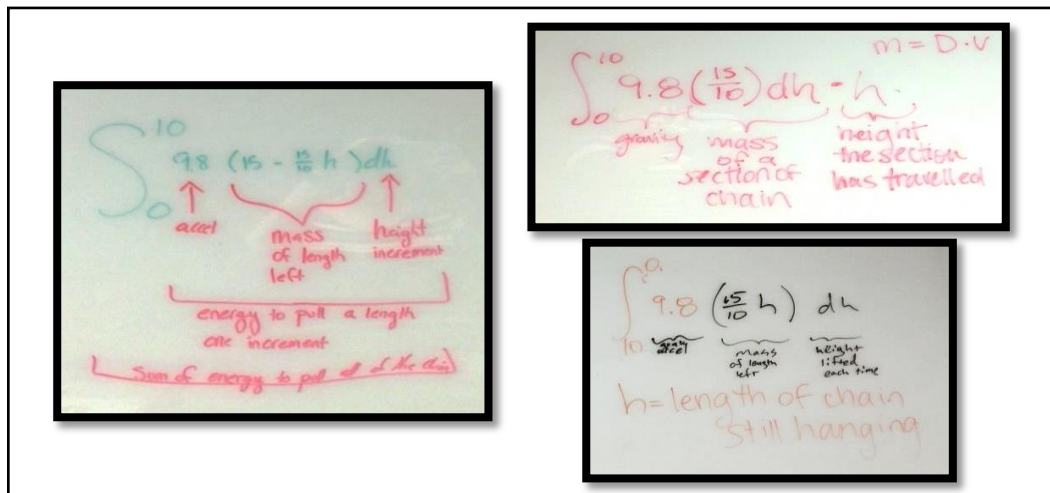 ∫₀¹⁰ 9.8 (15 - 15/10 h) dh
accel
mass
of length
left
height
increment
energy to pull a length
one increment
Sum of energy to pull all of the chain
m = D·V
∫₀¹⁰ 9.8 (15/10) dh · h
gravity
mass
of a
section of
chain
height
the section
has travelled
∫₁₀⁰ 9.8 (15/10 h) dh
accel
mass
of length
left
height
lifted
each time
h = length of chain
still hanging